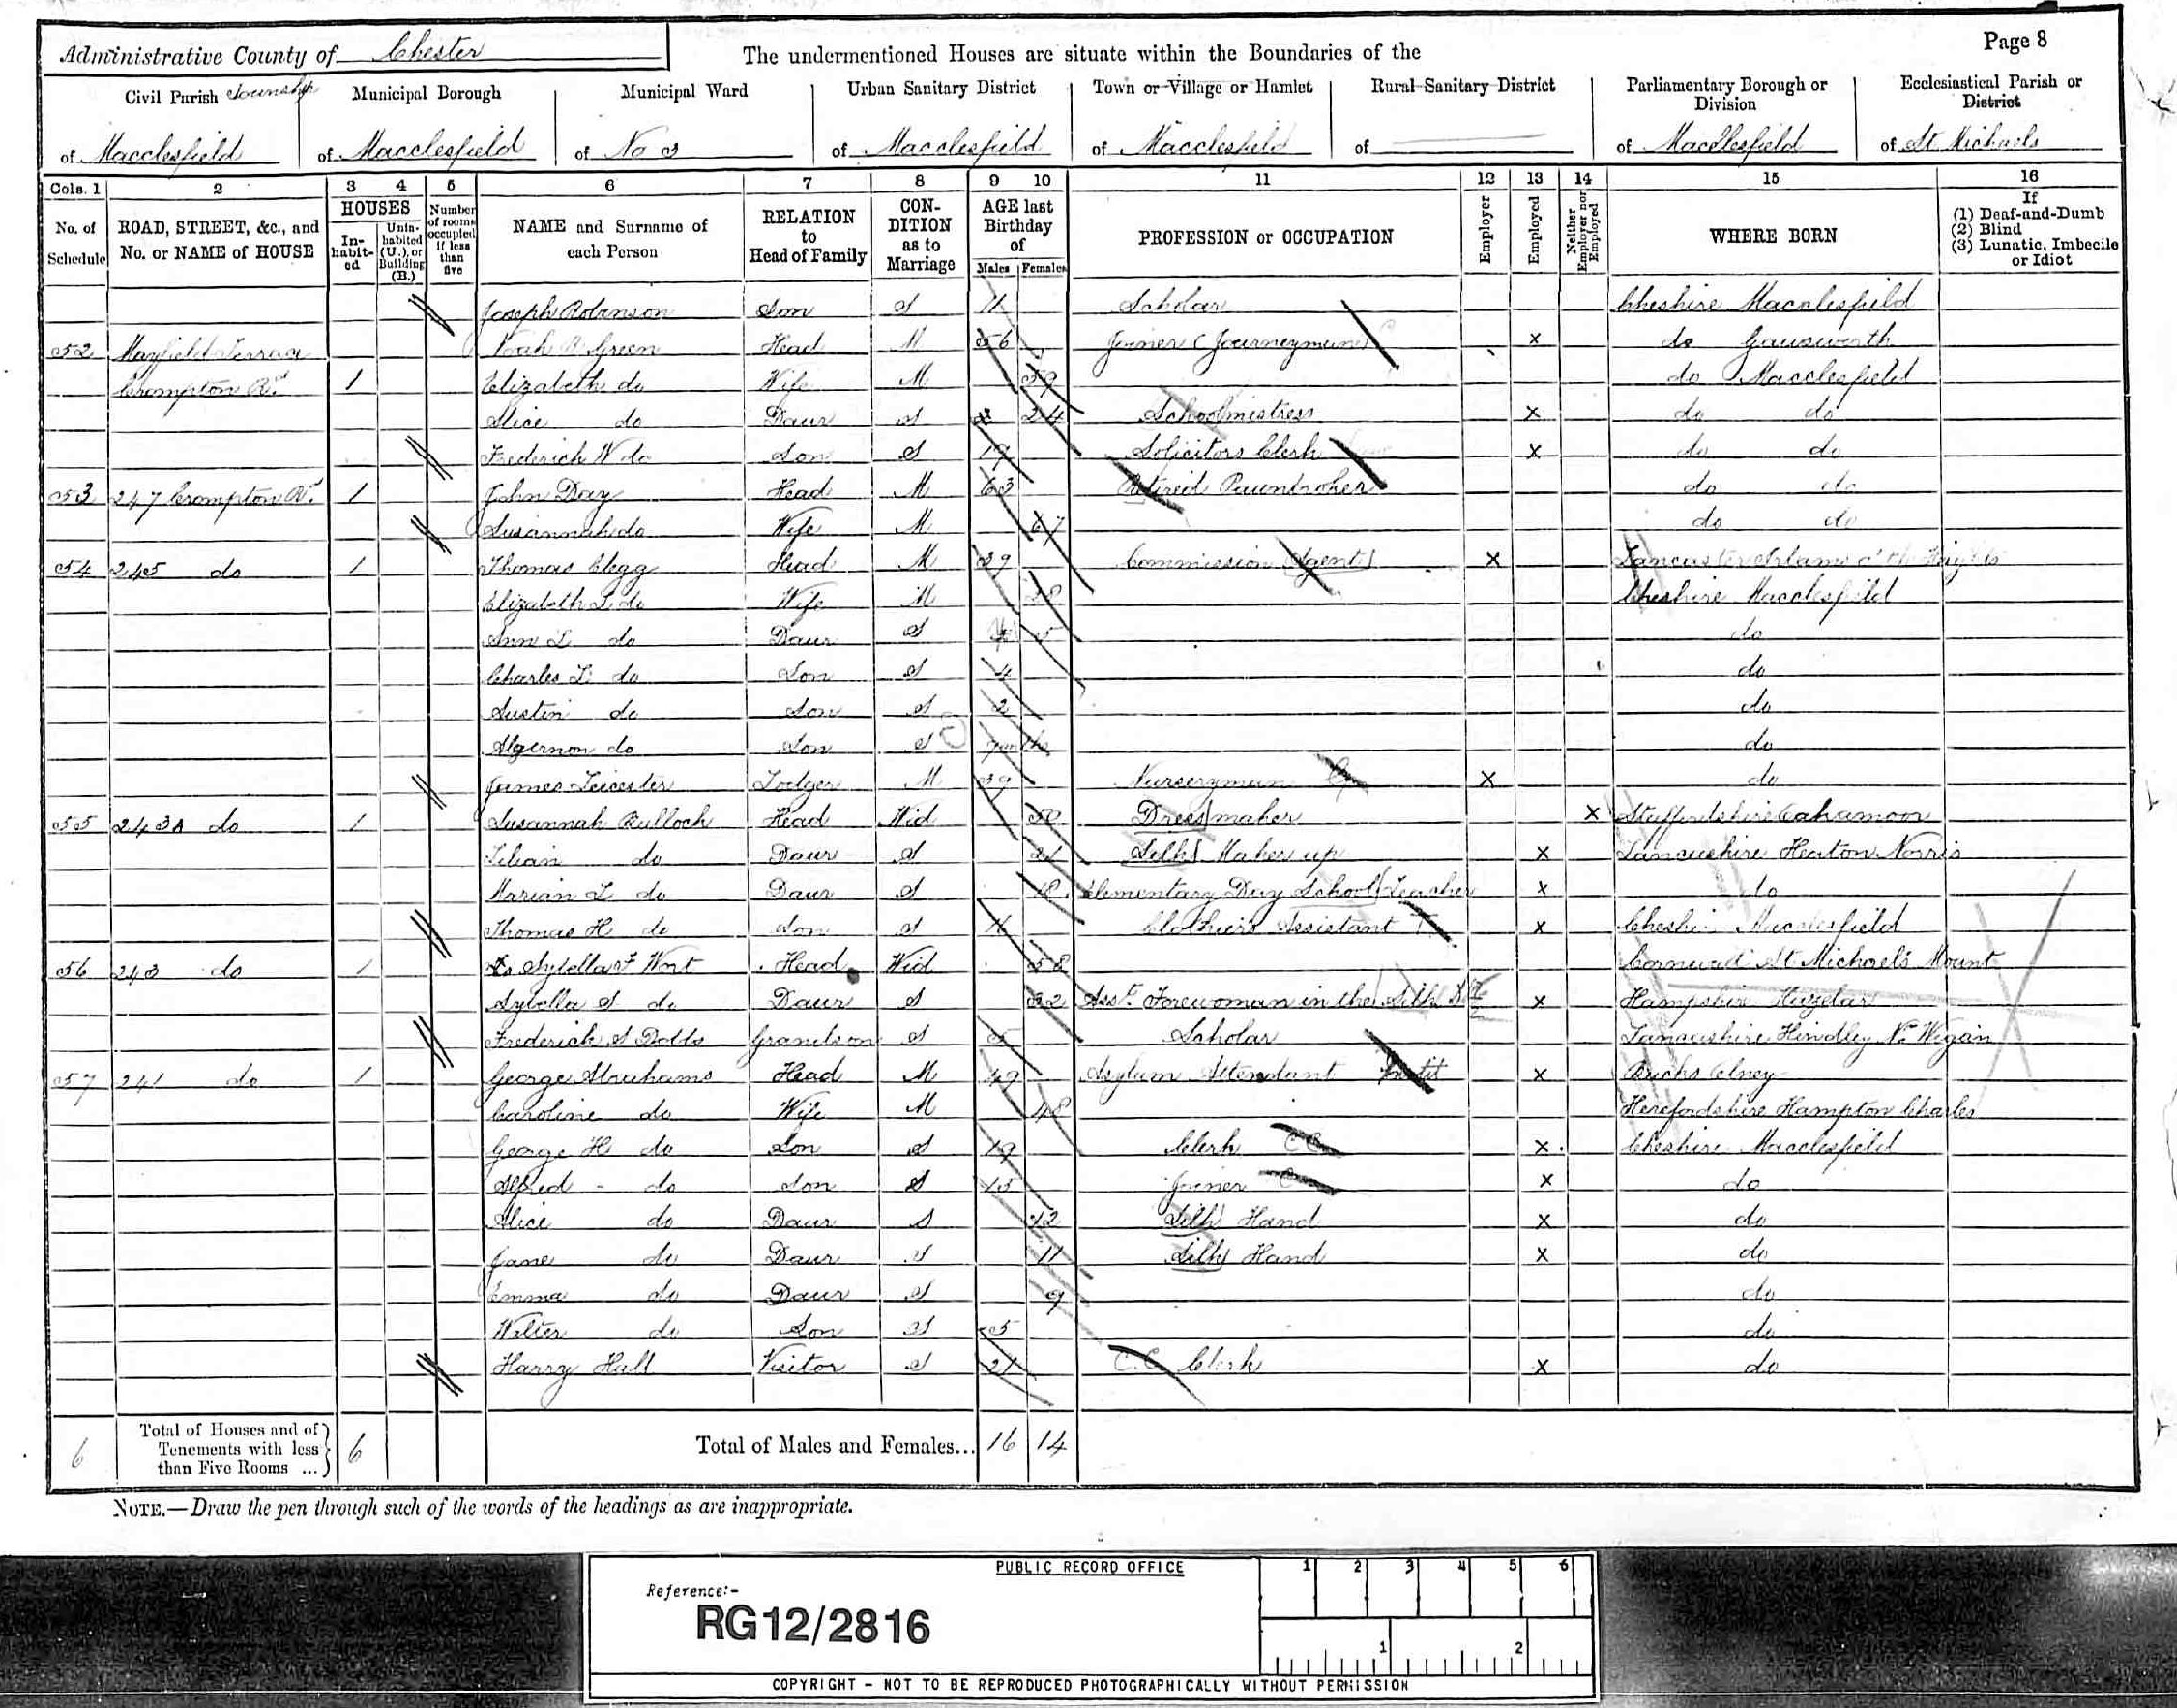 Page 8
Administrative County of Chester
The undermentioned Houses are situate within the Boundaries of the
Civil Parish Township
Municipal Borough
Municipal Ward
Urban Sanitary District
Town or Village or Hamlet
Rural Sanitary District
Parliamentary Borough or Division
Ecclesiastical Parish or District
of Macclesfield
of Macclesfield
of No 3
of Macclesfield
of Macclesfield
of
of Macclesfield
of St Michaels
Cols. 1 2 3 4 5 6 7 8 9 10 11 12 13 14 15 16
No. of Schedule
ROAD, STREET, &c., and No. or NAME of HOUSE
HOUSES
In-habit-ed
Unin-habited (U.), or Building (B.)
Number of rooms occupied if less than five
NAME and Surname of each Person
RELATION to Head of Family
CON-DITION as to Marriage
AGE last Birthday of
Males Females
PROFESSION or OCCUPATION
Employer
Employed
Neither Employer nor Employed
WHERE BORN
If
(1) Deaf-and-Dumb
(2) Blind
(3) Lunatic, Imbecile or Idiot
Joseph Robinson Son S 11 Scholar Cheshire Macclesfield
52 Mayfield Terrace Noah Green Head M 56 Joiner (Journeyman) x do Gawsworth
Crompton Rd. 1 Elizabeth do Wife M 59 do Macclesfield
Alice do Daur S 24 Schoolmistress x do do
Frederick W do Son S 19 Solicitors Clerk x do do
53 247 Crompton Rd. 1 John Day Head M 63 Retired Pawnbroker do do
Susannah do Wife M 67 do do
54 245 do 1 Thomas Clegg Head M 39 Commission Agent x Lancaster Irlams o' th' Heights
Elizabeth L do Wife M 28 Cheshire Macclesfield
Ann L do Daur S 5 do
Charles L do Son S 4 do
Austin do Son S 2 do
Algernon do Son S 7 mths do
James Leicester Lodger M 39 Nurseryman x do
55 243A do 1 Susannah Bulloch Head Wid 50 Dressmaker x Staffordshire
Lilian do Daur S 21 Silk Maker up x Lancashire Heaton Norris
Marian L do Daur S 18 Elementary Day School Teacher x do
Thomas H do Son S 16 Clothiers Assistant x Cheshire Macclesfield
56 243 do 1 Sybella F Wort Head Wid 58 Cornwall St Michaels Mount
Sybella S do Daur S 32 Asst Forewoman in the Silk x Hampshire
Frederick S Dobbs Grandson S 5 Scholar Lancashire Hindley Nr Wigan
57 241 do 1 George Abrahams Head M 49 Asylum Attendant x Bucks Olney
Caroline do Wife M 48 Herefordshire Hampton Charles
George H do Son S 19 Clerk CC x Cheshire Macclesfield
Alfred do Son S 15 Joiner x do
Alice do Daur S 12 Silk Hand x do
Jane do Daur S 11 Silk Hand x do
Emma do Daur S 9 do
Walter do Son S 5 do
Harry Hall Visitor S 21 C.C. Clerk x do
6
Total of Houses and of Tenements with less than Five Rooms ... 6
Total of Males and Females... 16 14
NOTE.—Draw the pen through such of the words of the headings as are inappropriate.
PUBLIC RECORD OFFICE
Reference:-
RG12/2816
1 2 3 4 5 6
1 2
COPYRIGHT - NOT TO BE REPRODUCED PHOTOGRAPHICALLY WITHOUT PERMISSION